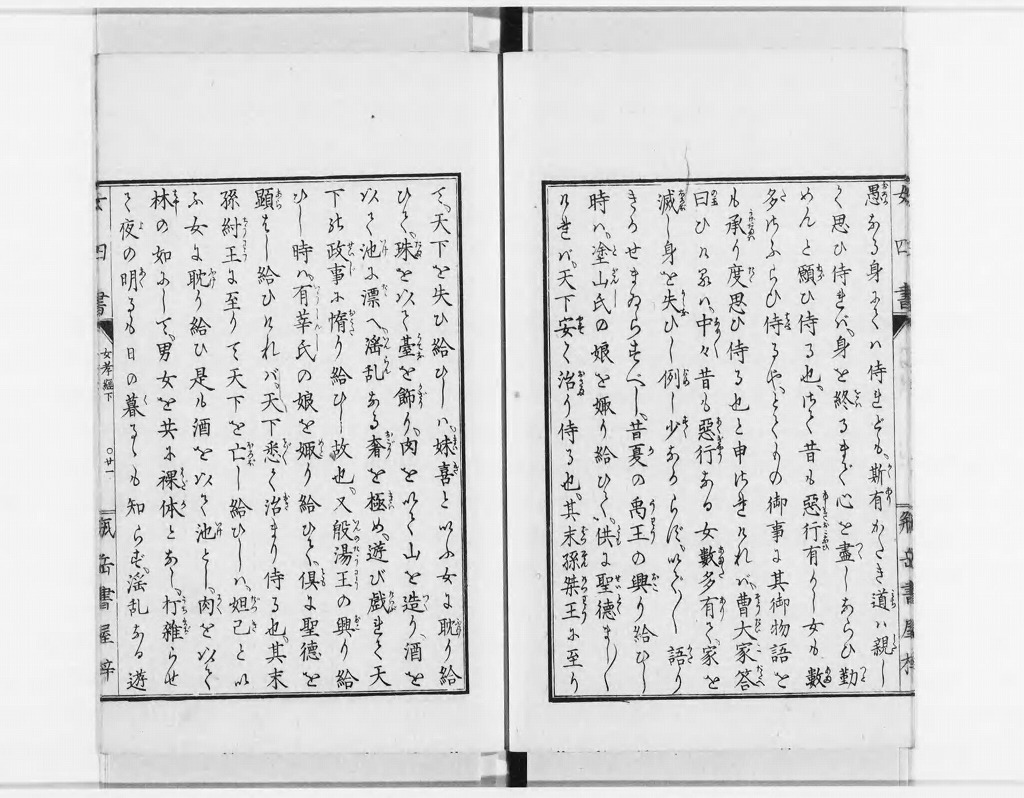 愚なる身にては侍れども斯有がたき道は親し
く思ひ侍れば身を終るまで心を盡しならひ勤
めんと願ひ侍る也さて昔も惡行有りし女も數
多さふらひ侍るやとてもの御事に其御物語を
も承り度思ひ侍る也と申されければ曹大家答
曰ひけるは中々昔も惡行なる女數多有て家を
滅し身を失ひし例し少なからずいで〳〵語り
きかせまゐらすべし昔夏の禹王の興り給ひし
時は塗山氏の娘を娵り給ひて供に聖德まし〳〵
ければ天下安く治り侍る也其末孫桀王に至り
て天下を失ひ給ひしは妹喜といふ女に耽り給
ひて珠を以て臺を飾り肉をいて山を造り酒を
以て池に漂へ滛乱なる奢を極め遊び戲れて天
下の政事に惰り給ひし故也又殷湯王の興り給
ひし時は有莘氏の娘を娵り給ひて倶に聖德を
顯はし給ひければ天下悉く治まり侍る也其末
孫紂王に至りて天下を亡し給ひしは妲己とい
ふ女に耽り給ひ是も酒をいて池とし肉を以て
林の如にして男女を共に裸体となし打雜らせ
て夜の明るも日の暮るゝも知らず滛乱なる遊
女四書
女孝經下
〇廿一
瓶岳書屋梓